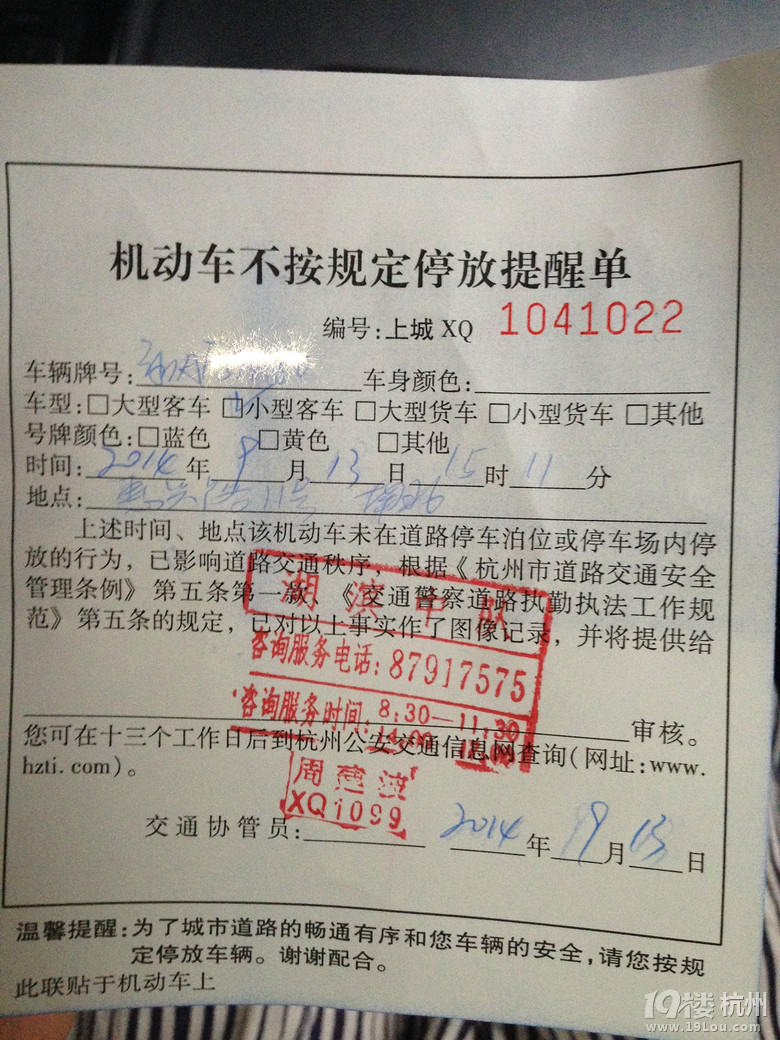 机动车不按规定停放提醒单
编号:上城XQ 1041022
车辆牌号: 车身颜色:
车型:□大型客车 □小型客车 □大型货车 □小型货车 □其他
号牌颜色:□蓝色 □黄色 □其他
时间:2014年9月13日15时11分
地点:
上述时间、地点该机动车未在道路停车泊位或停车场内停
放的行为，已影响道路交通秩序，根据《杭州市道路交通安全
管理条例》第五条第一款、《交通警察道路执勤执法工作规
范》第五条的规定，已对以上事实作了图像记录，并将提供给
湖滨中队
咨询服务电话:87917575
咨询服务时间:8:30—11:30
审核。
您可在十三个工作日后到杭州公安交通信息网查询(网址:www.
hzti.com)。
周建波
XQ1099
交通协管员: 2014年9月13日
温馨提醒:为了城市道路的畅通有序和您车辆的安全,请您按规
定停放车辆。谢谢配合。
此联贴于机动车上
19楼杭州
www.19Lou.com